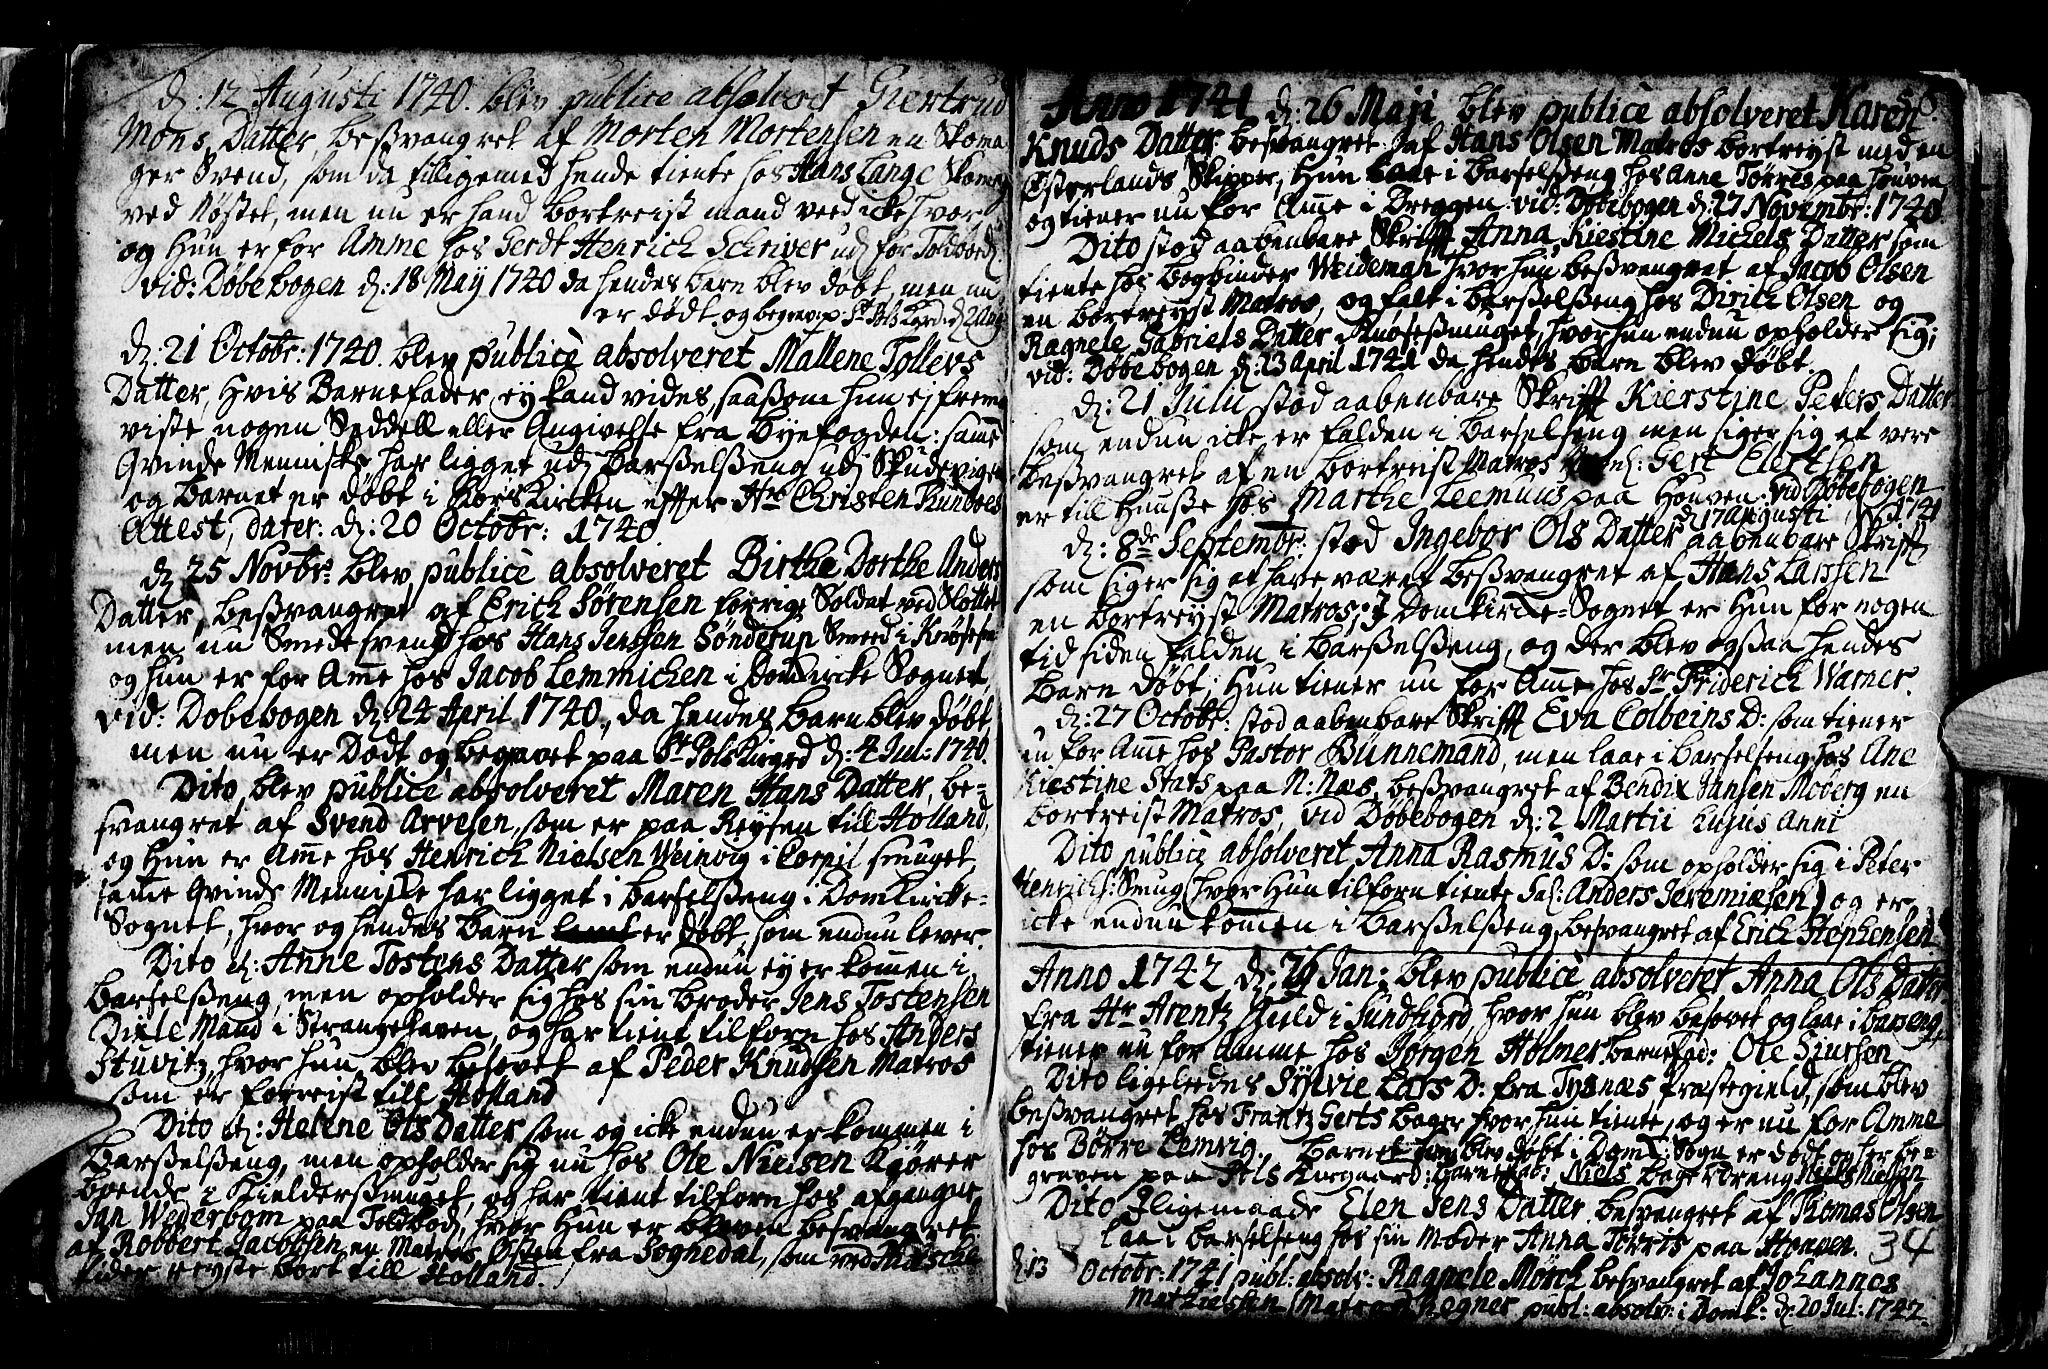 d: 12 Augusti 1740. blev publice absolveret Giertrud
Mons Datter, besvangret af Morten Mortensen en Skoma
ger Svend, som da tilligemed hende tiente hos Hans Lange Skomag
ved Nøstet, men nu er hand bortreist mand veed icke hvor
og Hun er for Amme hos Gerdt Henrich Schriver udj for Toldbod
vid: Døbebogen d: 18 Maij 1740 da hendes barn blev døbt, men nu
er dødt og begraven St Pols Kgrd. d: 2 Aug
d: 21 Octobr: 1740. blev publicè absolveret Mallene Tollevs
Datter, hvis Barnefader ey kand vides, saasom hun ej frem
viste nogen Seddell eller Angivelse fra Byefogden: samme
Qvinde Menniske har ligget udj Barsselsseng udj Skudevigen
og Barnet er døbt i Korskircken effter Hr Christen Rundboes
Attest, dater: d: 20 Octobr: 1740
d 25 Novbr: blev publicè absolveret Birthe Dorthe Anders
Datter, besvangret af Erich Sørensen forrige Soldat ved Slottet
men nu Smedesvend hos Hans Jenssen Sønderup Smed i
og hun er for Amme hos Jacob Lemmichen i Domkircke Sognet,
vid: Døbebogen d: 24 April 1740, da hendes barn blev døbt
men nu er Dødt og begravet paa St Pols Kirgrd d: 4 Jul: 1740.
Dito, blev publicè absolveret Maren Hans Datter, be-
svangret af Svend Arvesen, som er paa Reysen till Holland,
og Hun er Amme hos Henrich Nielsen Weinvig i smuget
samme Qvinde Menniske har ligget i Barselsseng i Domkircke-
Sognet, hvor og hendes Barn er døbt, som endnu lever.
Dito d: Anne Tostens Datter som endnu ey er kommen i
Barselsseng, men opholder sig hos sin broder Jens Tostensen
Mand i Strangehaven, og har tient tilforn hos Anders
Stuvitz, hvor hun blev besovet af Peder Knudsen Matros
som er forreist till Holland
Dito d: Helene Ols Datter som og icke endnu er kommen i
Barsselsseng, men opholder sig nu hos Ole Nielsen Kjører
boende i smuget, og har tient tilforn hos afgangne
Jan Wederbom paa Toldbod, hvor Hun er bleven besvangret
af Robbert Jacobsen en Matros fra Soghedal, som ved
tider reyste bort till Holland.
56.
Anno 1741 d: 26 Maji blev publicè absolveret Karen
Knuds Datter besvangret af Hans Olsen Matros bortreyst med en
Østerlands Skipper, Hun laae i Barselsseng hos Anne Tørres paa Houven
og tiener nu for Amme i Dreggen vid: Døbebogen d: 27 Novembr: 1740
Dito stod aabenbare Skrifft Anna Kiestine Michels Datter som
tiente hos bogbinder Weideman hvor hun besvangret af Jacob Olsen
en bortreyst Matros, og falt i barsselsseng hos Dirich Olsen og
Ragnele Gabriels Datter i smuget, hvor hun endnu opholder sig;
vid: Døbebogen d: 23 April 1741 da hendes barn blev døbt.
d: 21 Julii stod aabenbare Skrifft Kierstine Peters Datter
som endnu icke er falden i Barselseng men siger sig at vere
besvangret af en bortreist Matros Gert Elertsen
er till huusse hos Marthe Leemuus paa Houven: vid Døbebogen
d: 17 Augusti 1741
d: 8de Septembr: stod Ingebor Ols Datter aabenbare Skrifft
som siger sig at have været besvangret af Hans Larssen
en bortreyst Matros; I Domkircke-Sognet er Hun for nogen
tid siden falden i Barsselsseng, og der blev ogsaa hendes
Barn døbt; Hun tiener nu for Amme hos Sr Friderich Warner.
d: 27 Octobr: stod aabenbare Skrifft Eva Colbeins D: som tiener
nu for Amme hos Pastor Bünnemand, men laae i Barselseng hos Ane
Kiestine Stats paa N: Næs, besvangret af Bendix Jansen Moberg en
bortreist Matros, vid Døbebogen d: 2 Martii hujus Anni
Dito publicè absolveret Anna Rasmus D: som opholder sig i Peter
Henrichs: Smug (hvor Hun tilforn tiente Sal: Anders Jeremiæsen) og er
icke endnu kommen i Barsselsseng, besvangret af Erich Stephensen
Anno 1742 d: 26 Jan: blev publicè absolveret Anna Ols Datter
fra Hr Arentz Gield i Sundfiord, hvor hun blev besovet og laae i barseng,
tiener nu for Amme hos Jørgen Holmer. barnefad: Ole Siursen
Dito ligeledes Sylvie Lars D: fra Tysnæs Præstegield, som blev
besvangret hos Frantz Gerts bager hvor hun tiente, og er nu for Amme
hos Børre Lemvig. Barnet blev døbt i Domk: Sogn er dødt og her be-
graven paa Pols Kirgaard: barnefad: Niels bagerdreng Niels Nielsen
Dito Iligemaade Elen Jens Datter besvangret af Thomas Olsen
laa i barselseng hos sin Moder Anna Tørris paa Houven. 34
d 13 Octobr: 1741 publ: absolv: Ragnele Mörch besvangret af Johannes
Mathiessen Matros Regner publ: absolv: i Domk: d: 20 Jul: 1742.